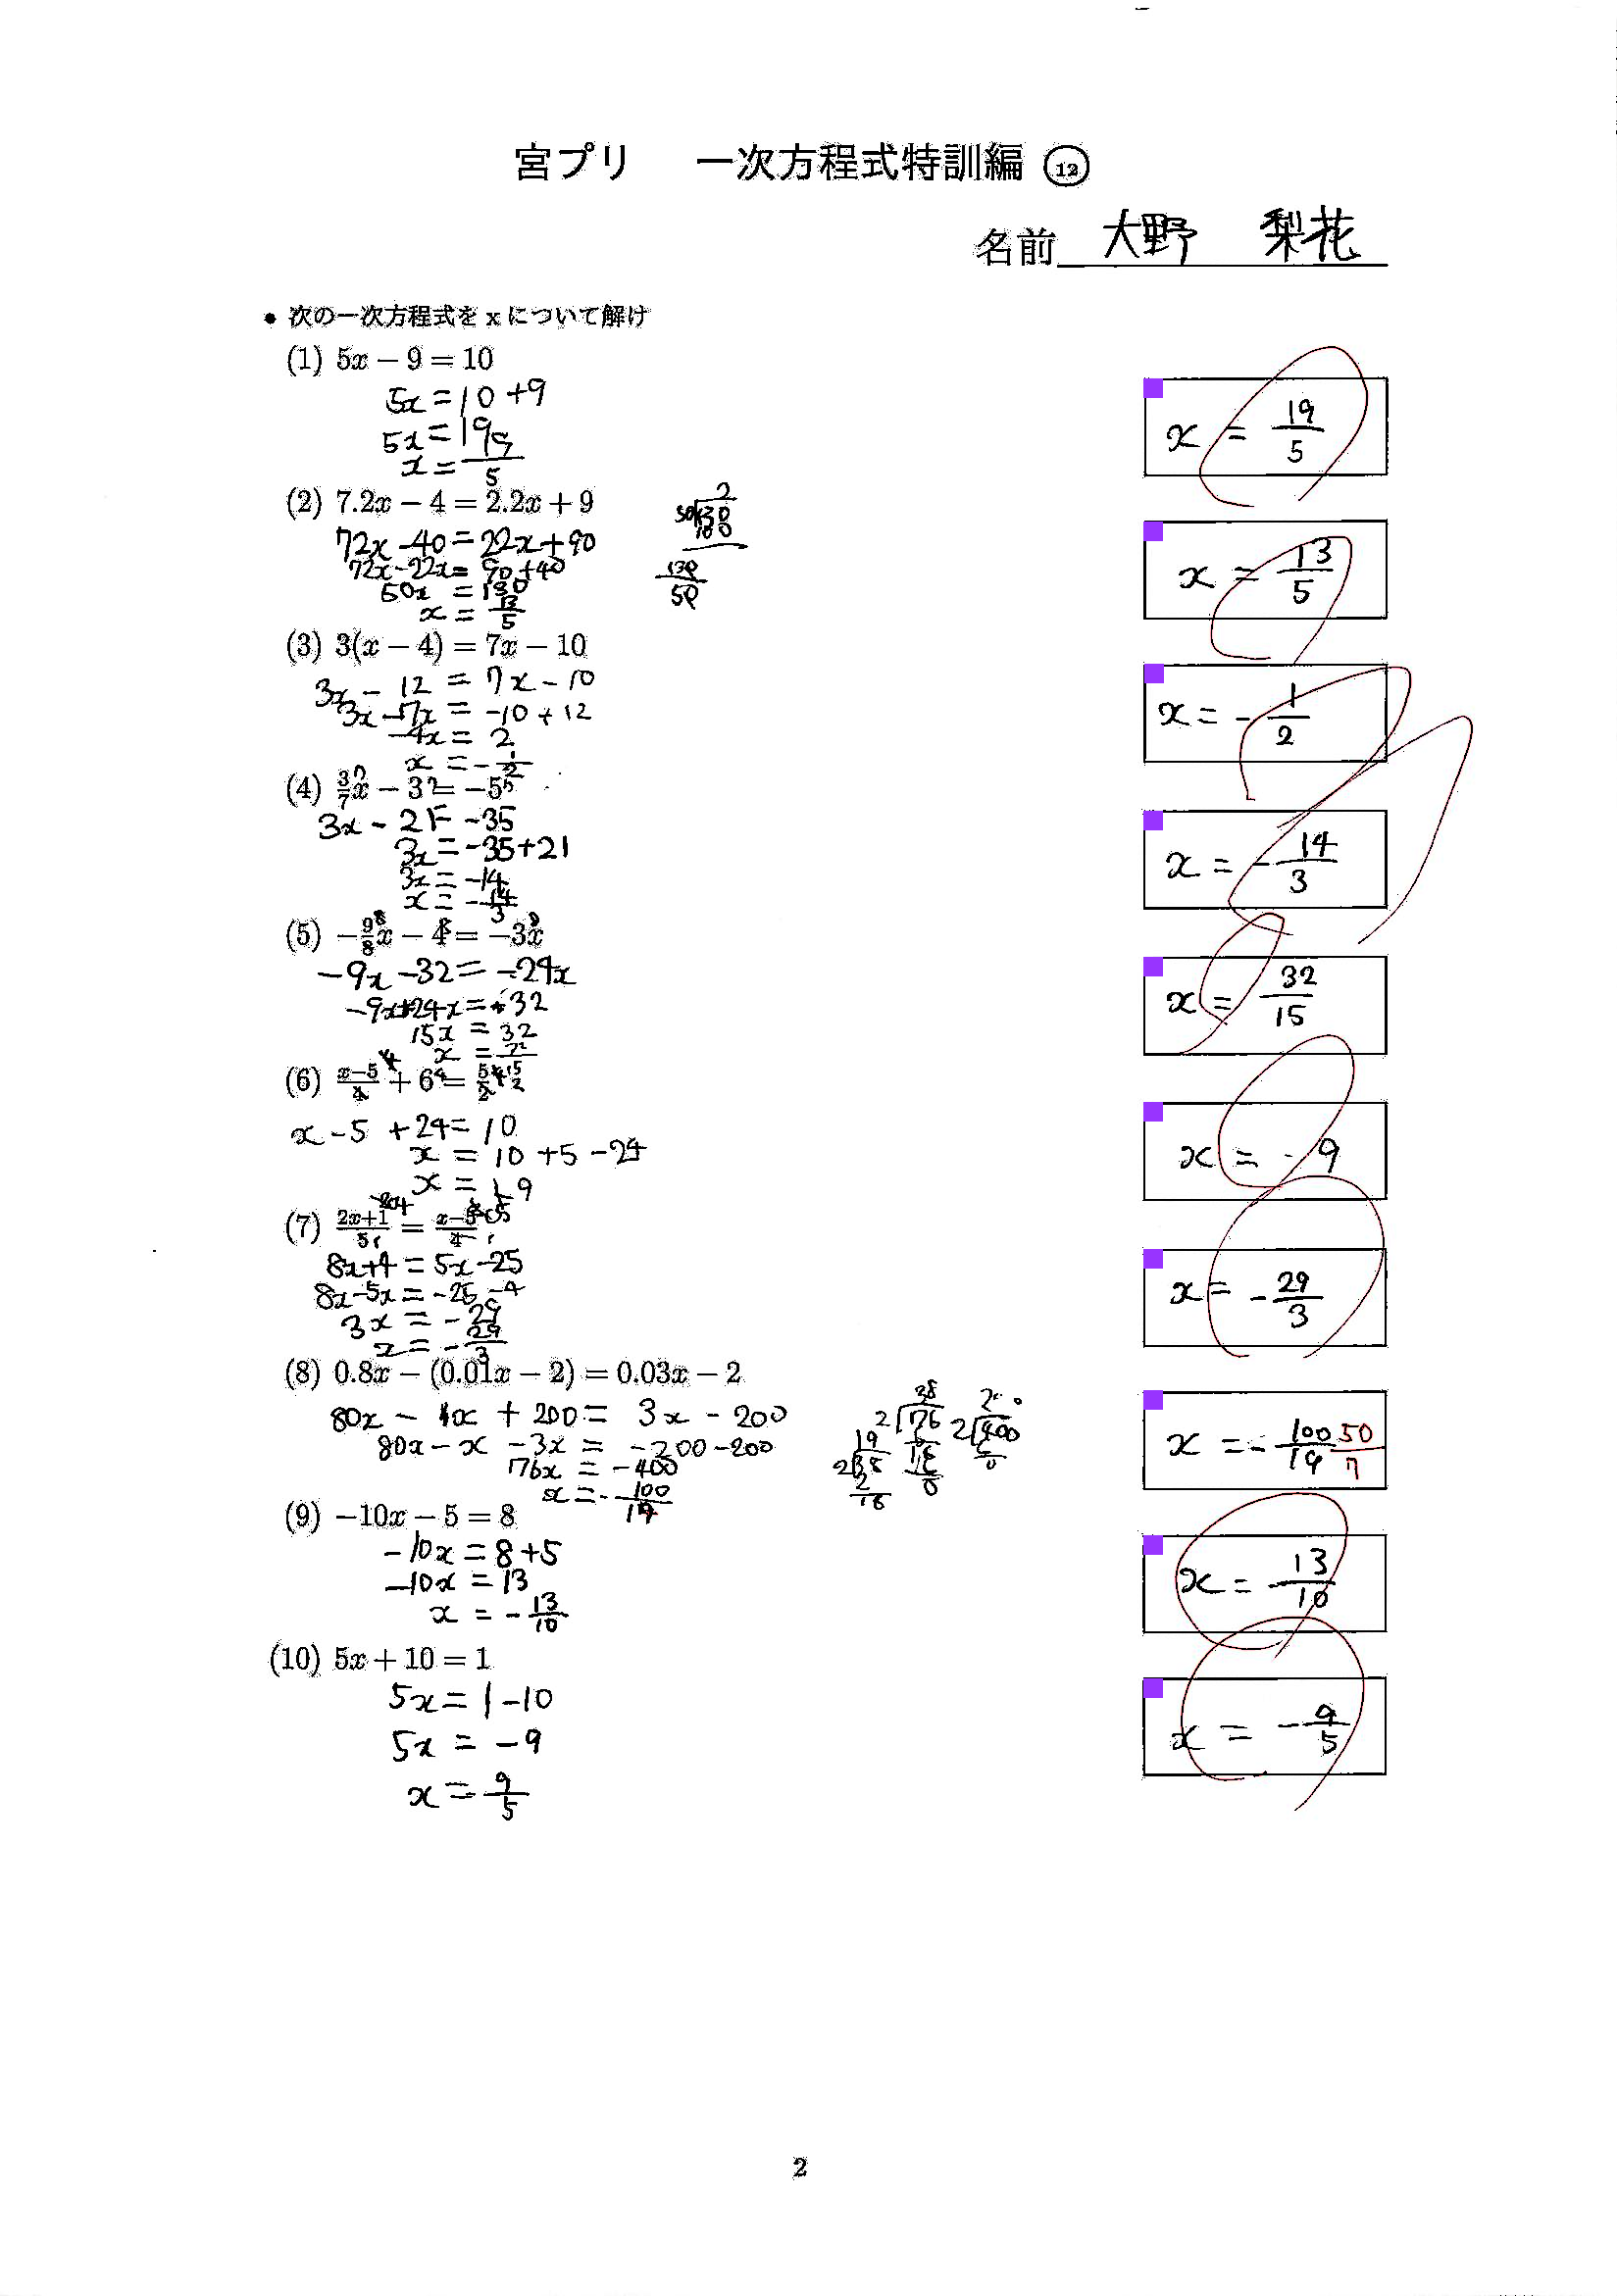 宮プリ 一次方程式特訓編 ⑫
名前 大野 梨花
• 次の一次方程式を x について解け
(1) 5x − 9 = 10
5x = 10 + 9
5x = 19
x = 9/5
x = 19/5
(2) 7.2x − 4 = 2.2x + 9
72x − 40 = 22x + 90
72x − 22x = 90 + 40
50x = 130
x = 13/5
130/50
x = 13/5
(3) 3(x − 4) = 7x − 10
3x − 12 = 7x − 10
3x − 7x = −10 + 12
−4x = 2
x = −1/2
x = −1/2
(4) 3/7 x − 3 = −5
3x − 21 = −35
3x = −35 + 21
3x = −14
x = −14/3
x = −14/3
(5) −9/8 x − 4 = −3x
−9x − 32 = −24x
−9x + 24x = 32
15x = 32
x =
x = 32/15
(6) (x−5)/4 + 6 = 5/2
x − 5 + 24 = 10
x = 10 + 5 − 24
x = −9
x = −9
(7) (2x+1)/5 = (x−5)/4
8x + 4 = 5x − 25
8x − 5x = −25 − 4
3x = −29
x = −29/3
x = −29/3
(8) 0.8x − (0.01x − 2) = 0.03x − 2
80x − x + 200 = 3x − 200
80x − x − 3x = −200 − 200
76x = −400
x = −100/19
x = −100/19 50/7
(9) −10x − 5 = 8
−10x = 8 + 5
−10x = 13
x = −13/10
x = −13/10
(10) 5x + 10 = 1
5x = 1 − 10
5x = −9
x = 9/5
x = −9/5
2